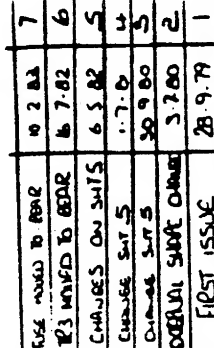 FUSE MOVED TO REAR 10 2 83 7
TR3 MOVED TO REAR 16 7.82 6
CHANGES ON SHTS 6 5 82 5
CHANGE SHT 5 1.7.8 4
CHANGE SHT 5 30 9 80 3
EXTERNAL SHAPE CHANGED 3.7.80 2
FIRST ISSUE 28.9.79 1